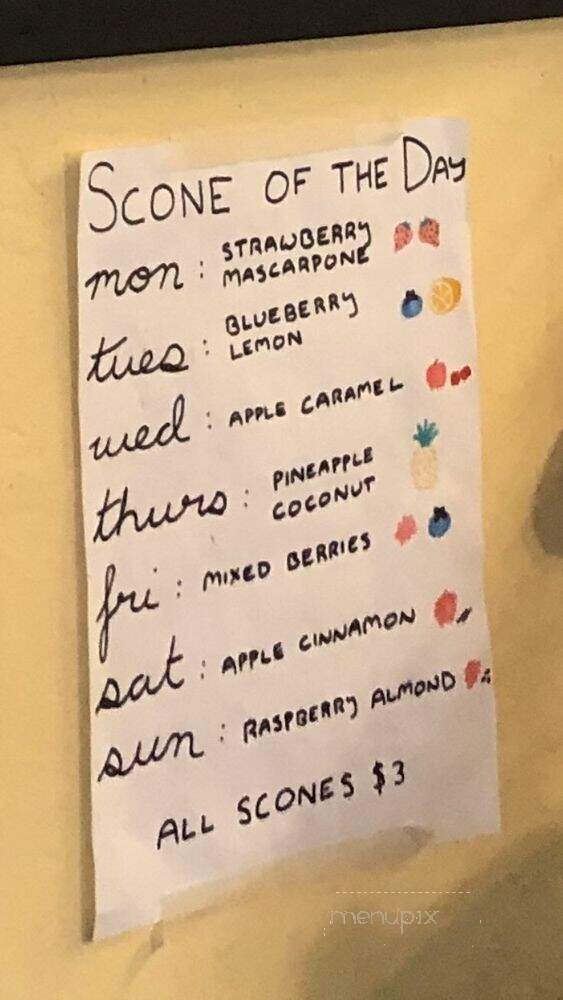 SCONE OF THE DAY
mon : STRAWBERRY
MASCARPONE
tues : BLUEBERRY
LEMON
wed : APPLE CARAMEL
thurs : PINEAPPLE
COCONUT
fri : MIXED BERRIES
sat : APPLE CINNAMON
sun : RASPBERRY ALMOND
ALL SCONES $3
menupix